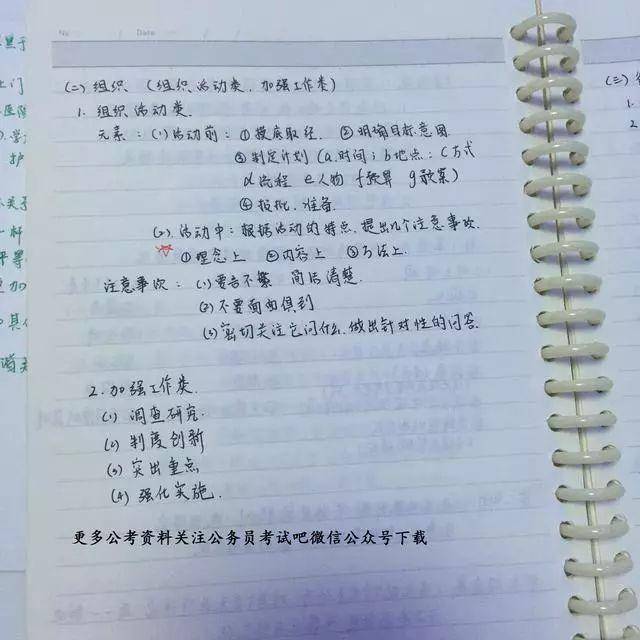 No.
Date
(二)组织.(组织活动类.加强工作类)
1.组织活动类.
元素:(1)活动前:①摸底取经.②明确目标意图
③制定计划(a.时间;b地点:C方式
d流程 e人物 f预算 g预案)
④报批.准备.
(2).活动中:根据活动的特点.提出几个注意事项.
①理念上 ②内容上 ③方法上.
注意事项:(1)要言不繁 简洁清楚.
(2)不要面面俱到
(3)密切关注它问什么.做出针对性的问答.
2.加强工作类.
(1)调查研究.
(2)制度创新
(3)突出重点
(4)强化实施.
更多公考资料关注公务员考试吧微信公众号下载
(三)
1.
2